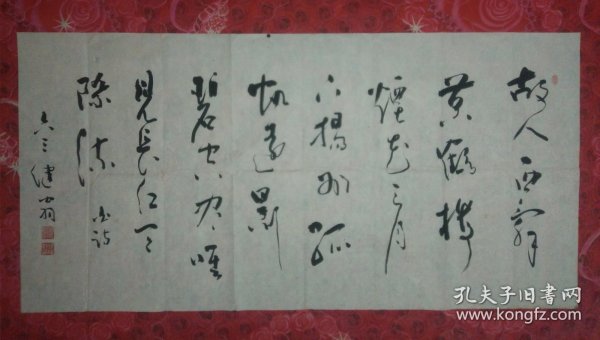 故人西辞
黄鹤楼
煙花三月
下揚州孤
帆遠影
碧空尽唯
見長江天
際流 李白诗
六三健翁
孔夫子旧書网
www.kongfz.com